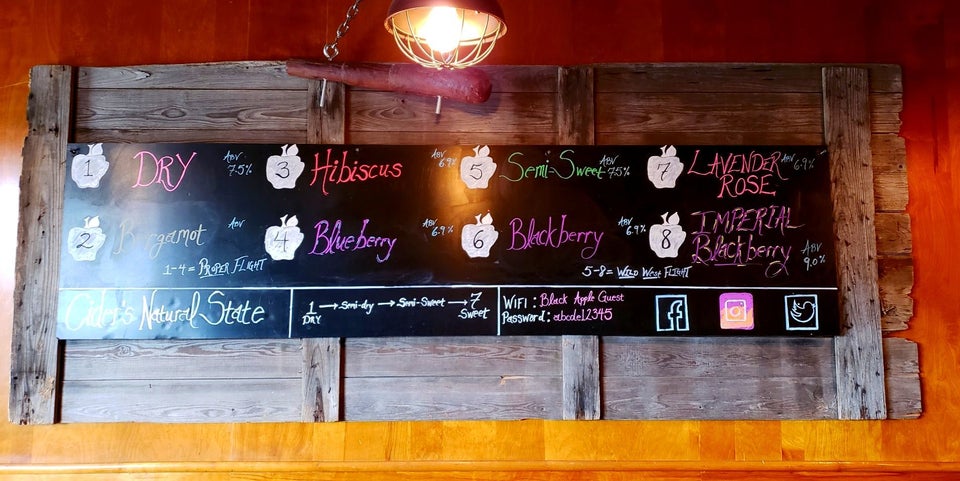 1 DRY ABV 7.5%
3 Hibiscus ABV 6.9%
5 Semi-Sweet ABV 7.5%
7 LAVENDER ROSE ABV 6.9%
2 Bergamot ABV
4 Blueberry ABV 6.9%
6 Blackberry ABV 6.9%
8 IMPERIAL Blackberry ABV 9.0%
1-4 = PROPER FLIGHT
5-8 = WILD West FLIGHT
Cider's Natural State
1 DRY → Semi-dry → Semi-Sweet → 7 Sweet
WiFi : Black Apple Guest
Password : abcde12345